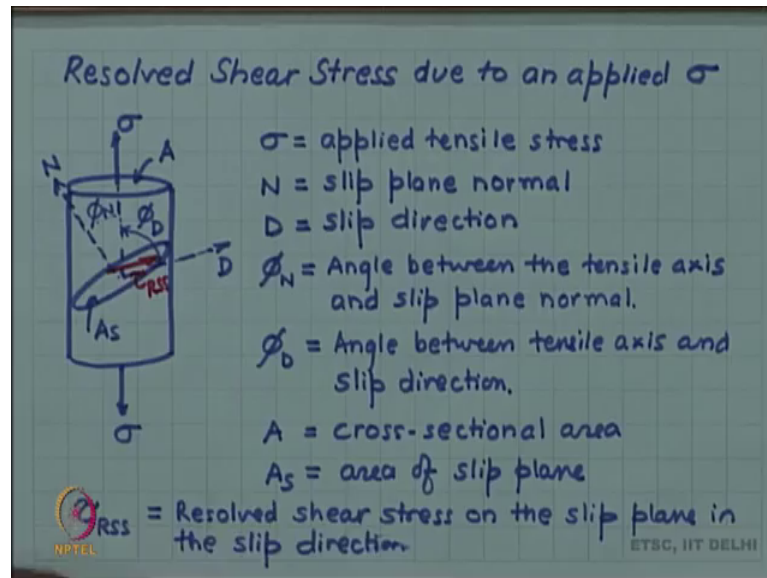 Resolved Shear Stress due to an applied σ
σ
A
N
ϕN
ϕD
D
τRSS
As
σ
σ = applied tensile stress
N = slip plane normal
D = slip direction
ϕN = Angle between the tensile axis
and slip plane normal.
ϕD = Angle between tensile axis and
slip direction.
A = cross-sectional area
As = area of slip plane
τRSS = Resolved shear stress on the slip plane in
the slip direction.
NPTEL
ETSC, IIT DELHI